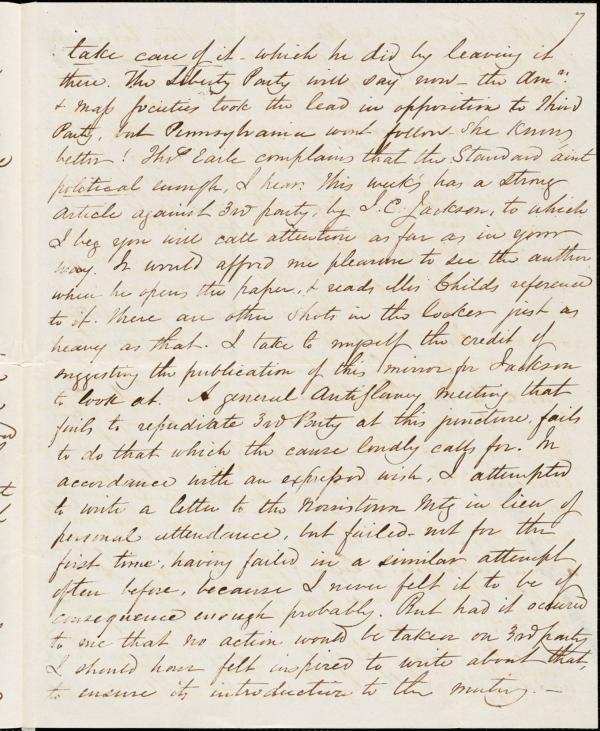 7
take care of it - which he did by leaving it
there. The Liberty Party will say now - the Amn.
& Mass Societies took the lead in opposition to Third
Party, but Pennsylvania wont follow - She knows
better! Thos. Earle complains that the Standard aint
political enough, I hear. This week's has a strong
article against 3rd party, by J. C. Jackson, to which
I beg you will call attention as far as in your
way. It would afford me pleasure to see the author
when he opens the paper, & reads Mrs Childs reference
to it. There are other Shots in the locker just as
heavy as that. I take to myself the credit of
suggesting the publication of this mirror for Jackson
to look at. A general Antislavery meeting that
fails to repudiate 3rd Party at this juncture, fails
to do that which the cause loudly calls for. In
accordance with an expressed wish, I attempted
to write a letter to the Norristown Mtg in lieu of
personal attendance, but failed - not for the
first time, having failed in a similar attempt
often before, because I never felt it to be of
consequence enough probably. But had it occured
to me that no action would be taken on 3rd party
I should have felt inspired to write about that,
to ensure its introduction to the meeting. -